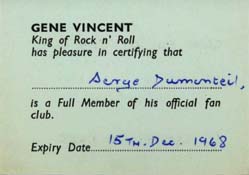 GENE VINCENT
King of Rock n' Roll
has pleasure in certifying that
Serge Dumonteil,
is a Full Member of his official fan
club.
Expiry Date 15TH. Dec. 1968